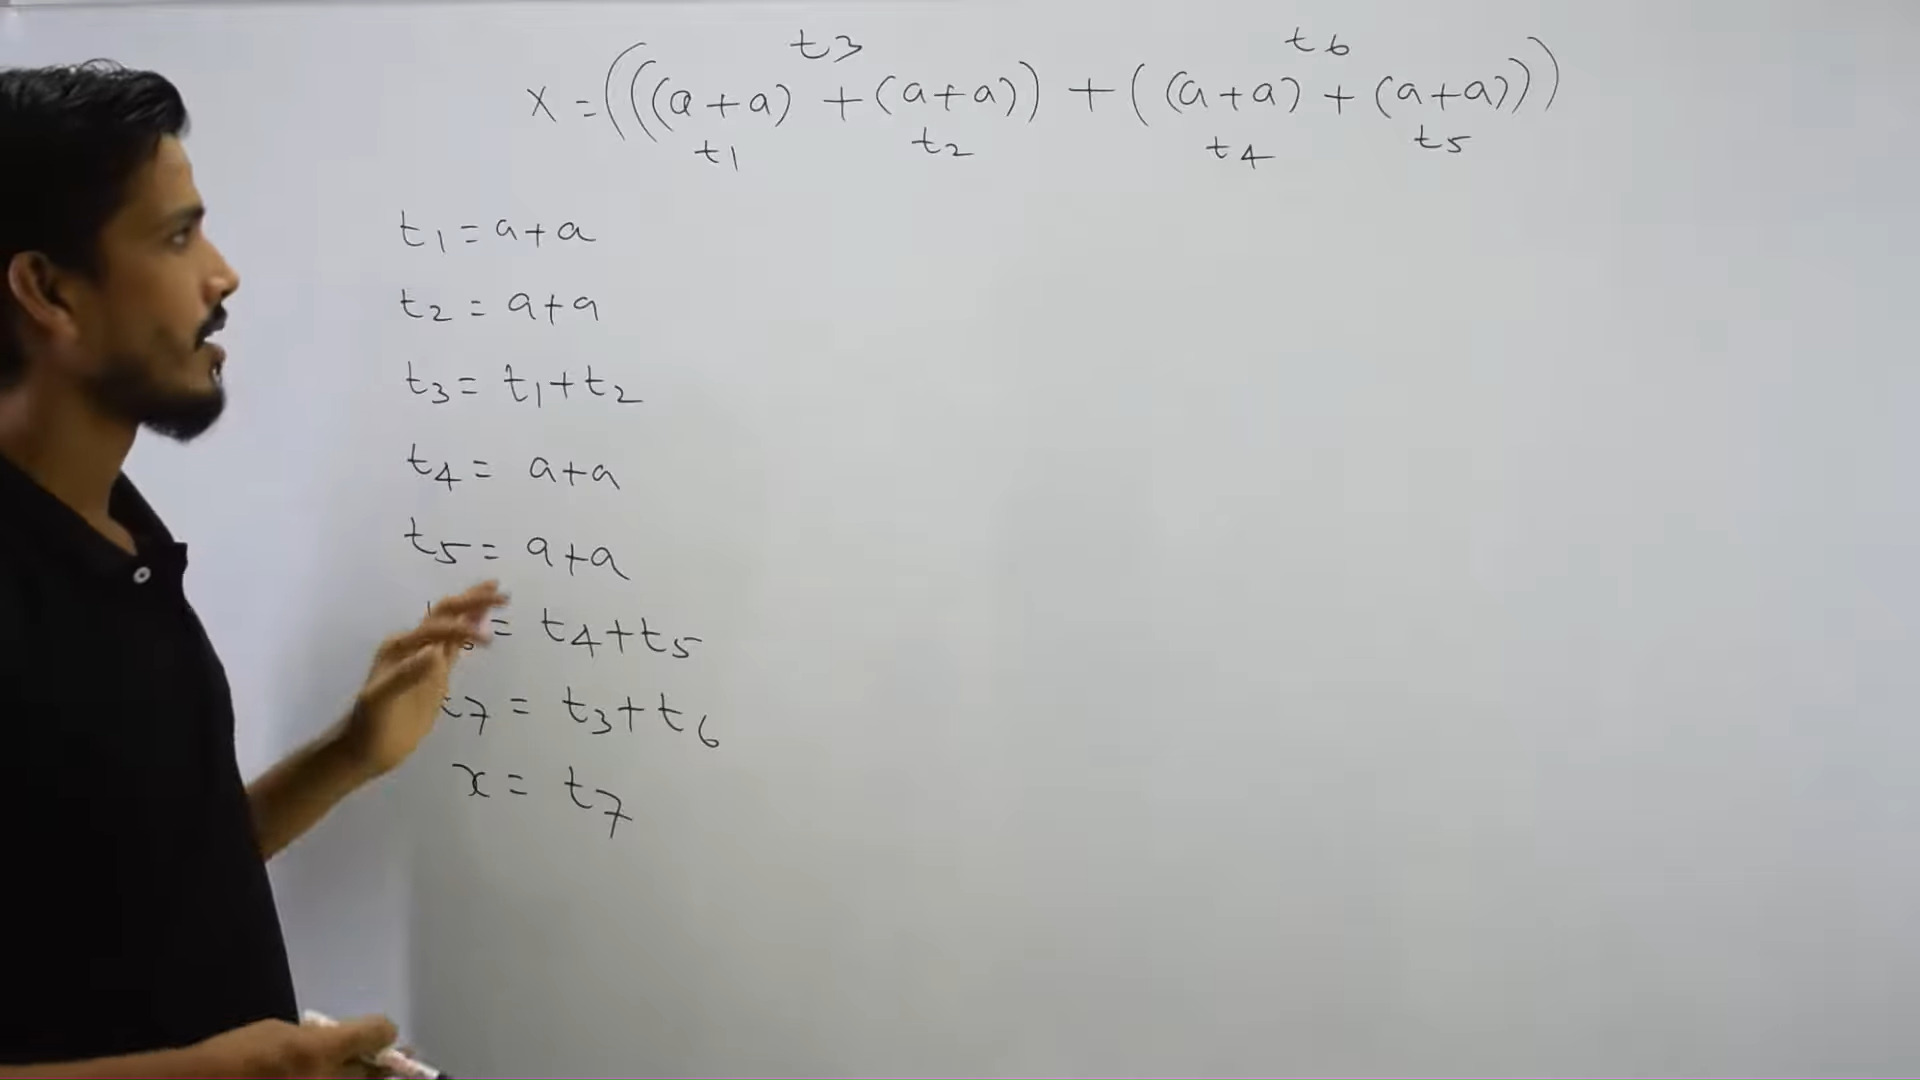 t3 t6
x = (((a+a) + (a+a)) + ((a+a) + (a+a)))
t1 t2 t4 t5
t1 = a+a
t2 = a+a
t3 = t1+t2
t4 = a+a
t5 = a+a
= t4+t5
t7 = t3+t6
x = t7